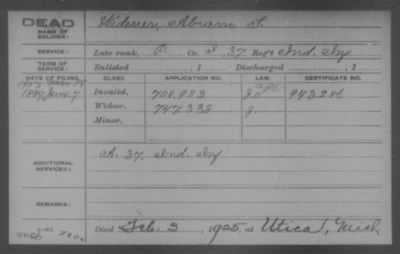 DEAD
NAME OF SOLDIER: Widener, Abram S.
SERVICE: Late rank, P Co. I, 37 Reg't Ind. Inf
TERM OF SERVICE: Enlisted , 1 Discharged , 1
DATE OF FILING. CLASS. APPLICATION NO. LAW. CERTIFICATE NO.
Invalid, 708.983 943286
1889 June 7 Widow, 747.338 J.
Minor,
ADDITIONAL SERVICES: 37, Ind. Inf
REMARKS:
Died Feb. 3, 1925, at Utica, Mich